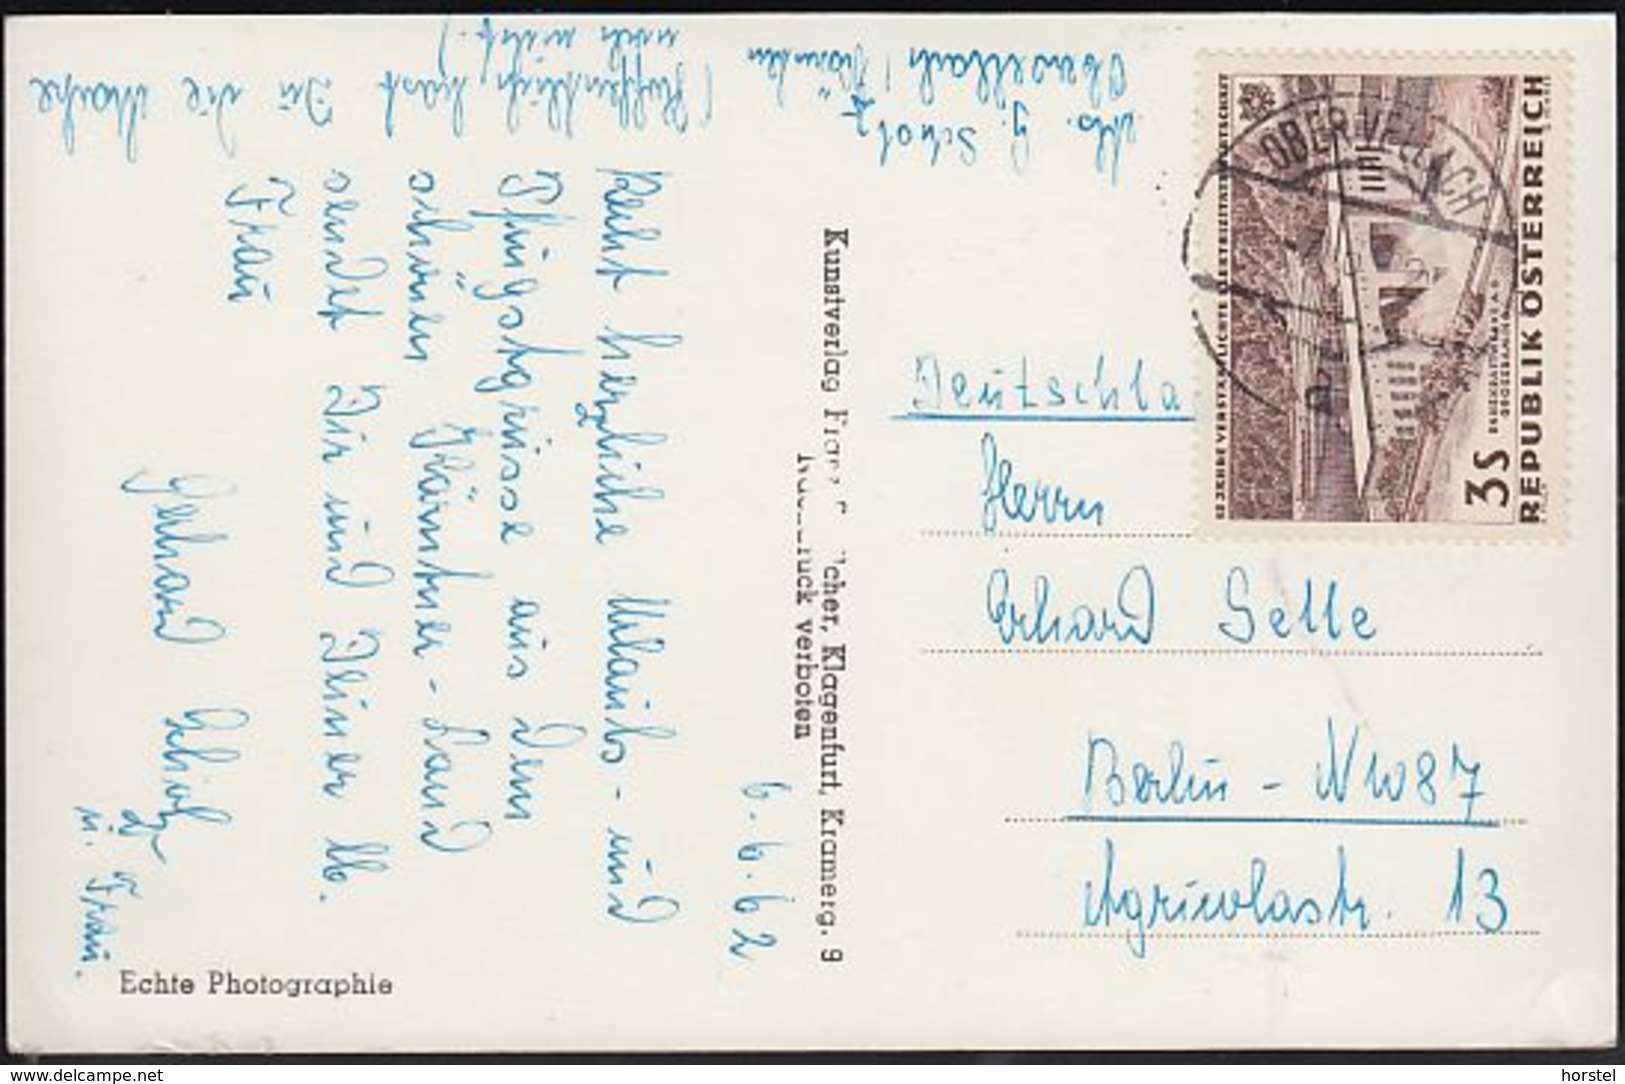 6.6.62
Recht herzliche Urlaubs- und
Pfingstgrüsse aus dem
schönen Kärntner-Land
sendet Dir und Deiner lb.
Frau
Gerhard Scholz
u. Frau.
(Hoffentlich hast Du die Marke
noch nicht.)
Abs. G. Scholz
Obervellach / Kärnten
Echte Photographie
Kunstverlag Franz cher, Klagenfurt, Kramerg. 9
ruck verboten
Deutschla
Herrn
Erhard Selle
Berlin - NW87
Agricolastr. 13
OBERVELLACH
15 JAHRE VERSTAATLICHTE ELEKTRIZITÄTSWIRTSCHAFT
3S
REPUBLIK ÖSTERREICH
www.delcampe.net
horstel